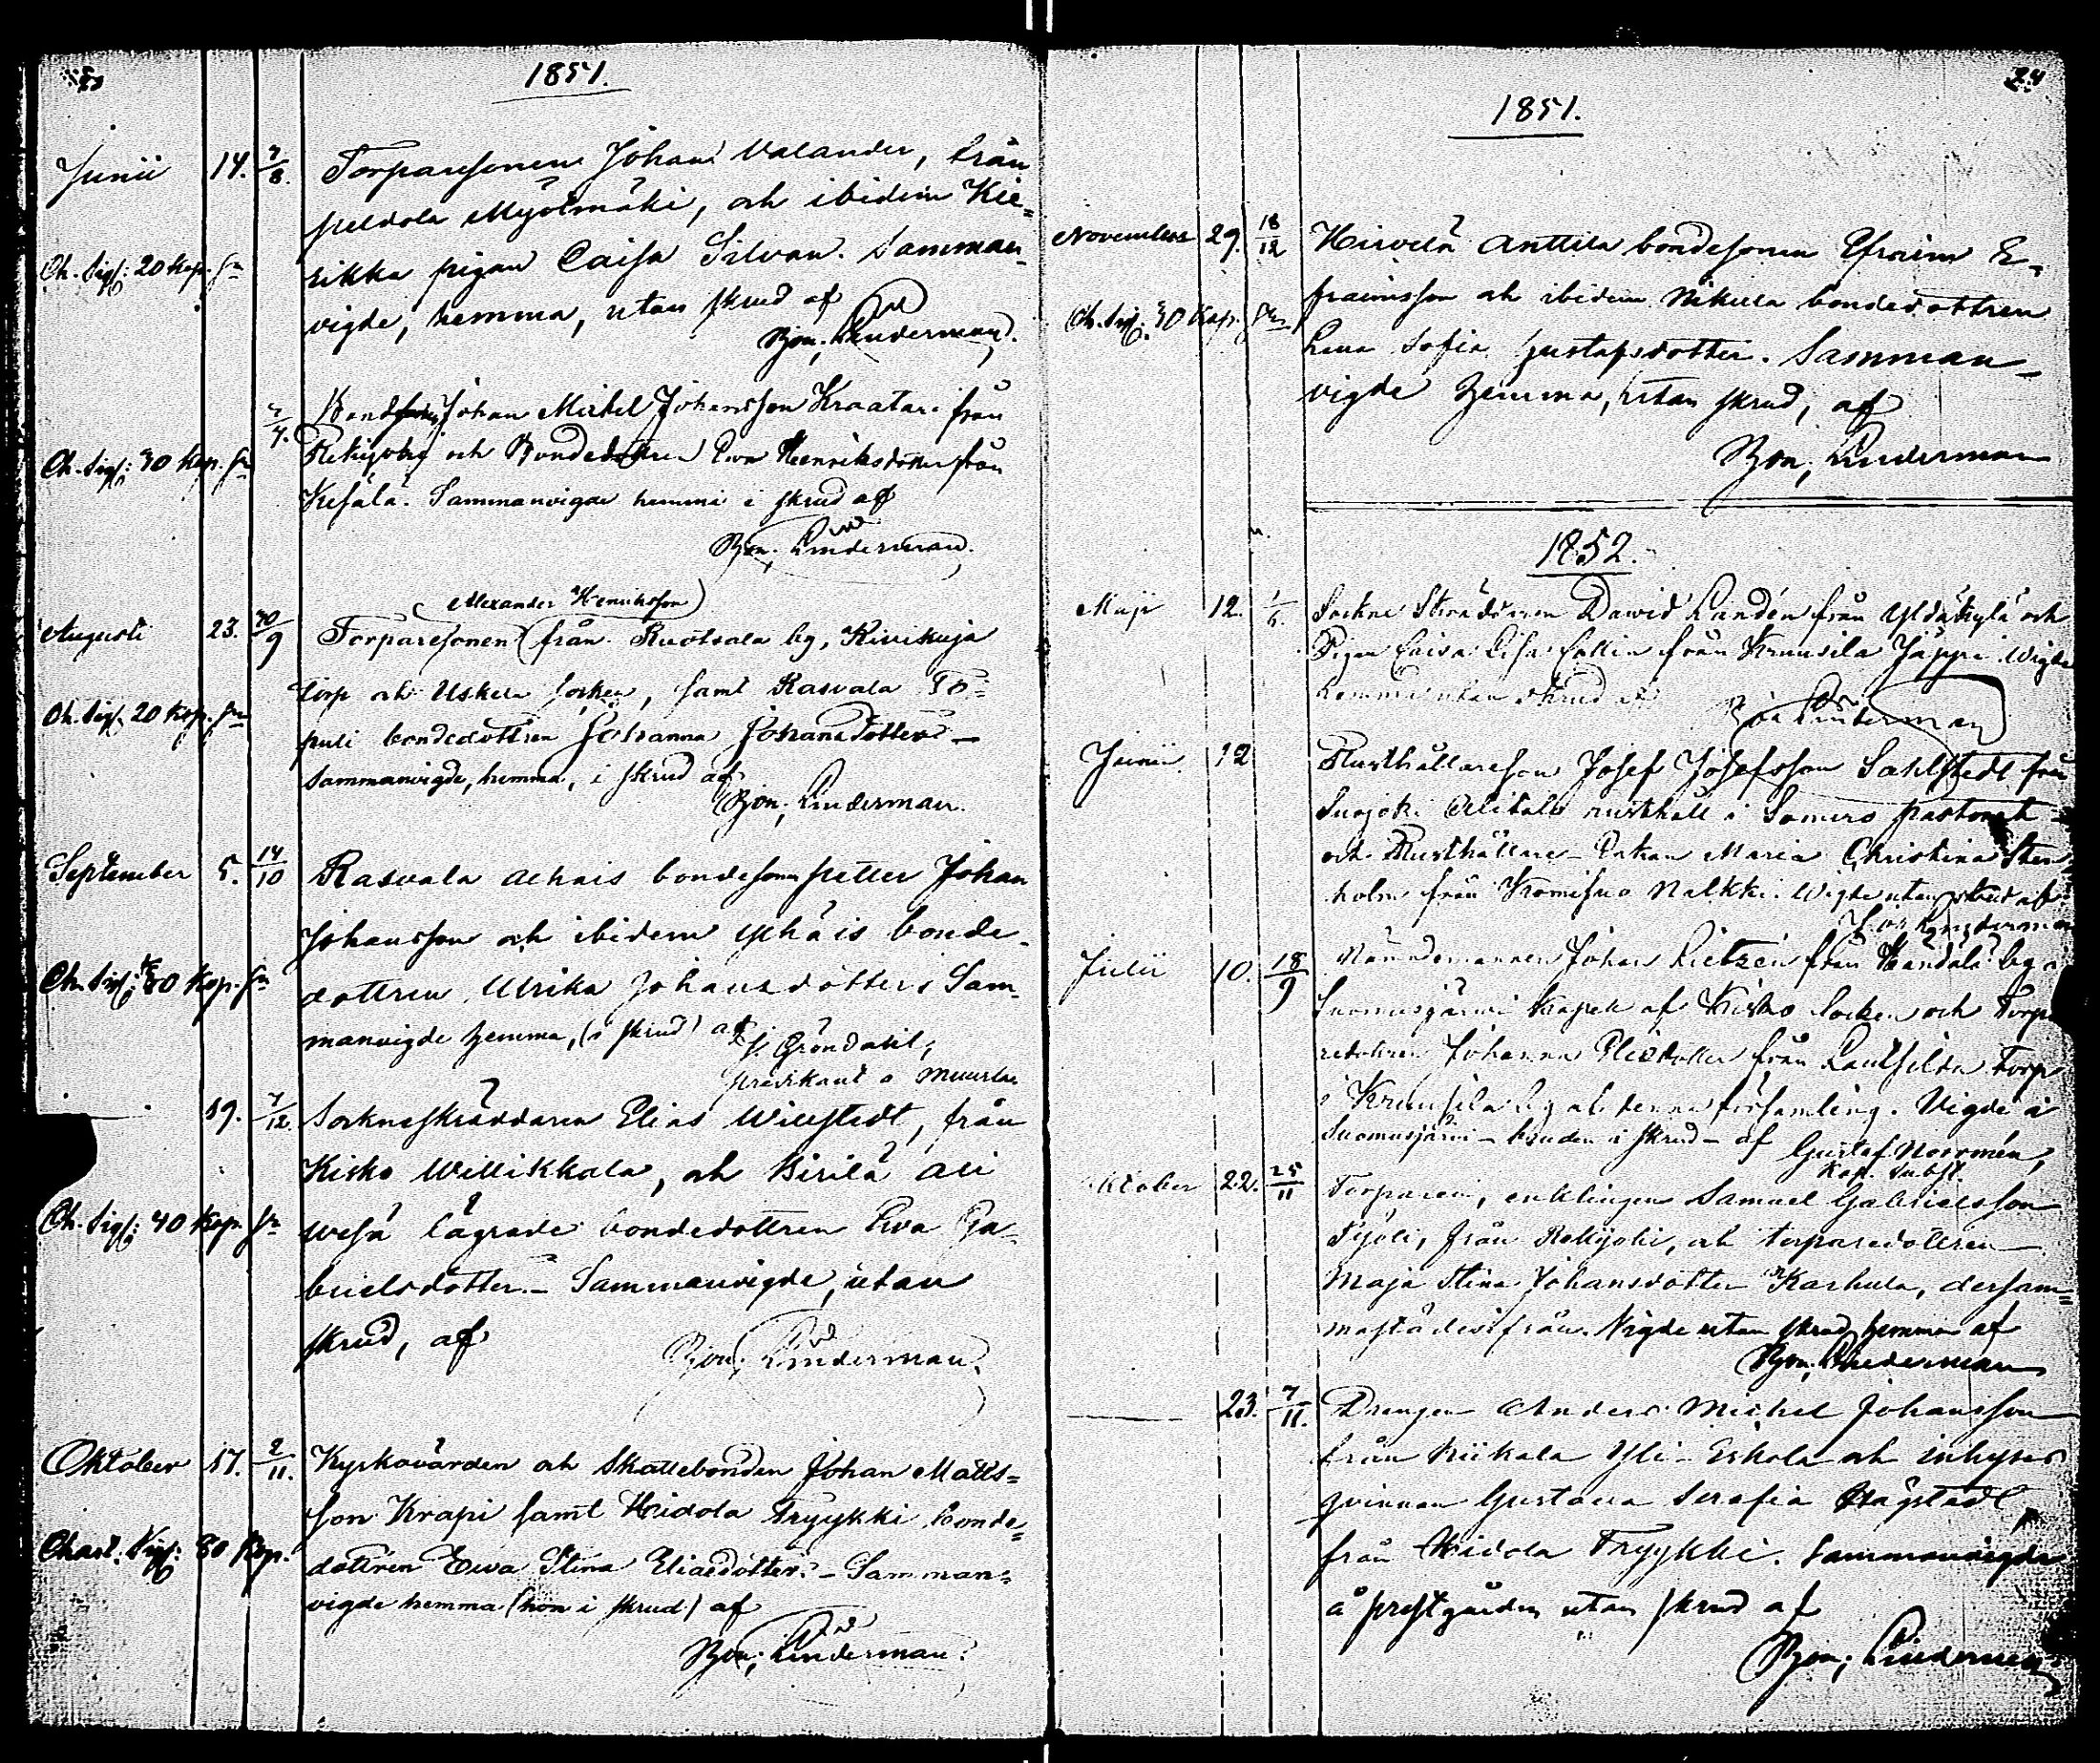 23
1851.
Junii 14. 7/8. Torparesonen Johan Valander, från
peldola Myötmäki, och ibidem Kie=
Ch. Sigf: 20 Kop. Sr rikka pigan Caisa Silvan. Samman=
vigde, hemma, utan skrud af
Bon; Linderman.
7/4. Johan Michel Johansson Kraatari från
Rekijoki och Bondedottren Eva Henriksdotter från
Ch. Sigf: 30 Kop. Sr
Kesälä. Sammanvigde hemma i skrud af
Bon; Linderman.
(Alexander Henriksson)
Augusti 23. 30/9 Torparesonen från Ruotsala by, Kivikuja
torp och Uskela socken, samt Rasvala To=
Ch. Sigf. 20 Kop. Sr
puli bondedottren Johanna Johansdotter —
Sammanvigde, hemma, i skrud af
Bon; Linderman.
September 5. 14/10 Rasvala Alhais bondesonen petter Johan
Johansson och ibidem Yhäis bonde=
Ch. Sigf: 30 Kop. Sr dottren Ulrika Johansdotter; Sam=
manvigde hemma, (i skrud) af
J. Gröndahl,
predikant i Muurla
19. 7/12. Sockneskräddaren Elias Willstedt, från
Kisko Willikkala, och Kirilä Ali
Ch. Sigf: 40 Kop. Sr
wesa lägrade bondedottren Eva Ga=
brielsdotter. — Sammanvigde, utan
skrud, af
Bon; Linderman.
Oktober 17. 2/11. Kyrkovärden och Skattebonden Johan Matts=
son Krapi samt Hidola Tryykki bonde=
Chart. Sigf: 80 Kop.
dottren Ewa Stina Eliasdotter. — Samman=
vigde hemma (hon i skrud) af
Bon; Linderman.
24
1851.
November 29. 18/12 Hirvelä Anttila bondesonen Efraim E=
fraimsson och ibidem Nikula bondedottren
Ch. Sigf. 30 Kop. Sr
Lena Sofia Gustafsdotter. Samman=
vigde hemma, utan skrud, af
Bon; Linderman
1852.
Maji 12. 1/6. Sockne Skräddaren David Landén från Yldäkylä och
Pigan Caisa Lisa Callin från Kruusila Jäppi. Vigde
hemma utan skrud af
Bon Linderman
Junii 12 Rusthållareson Josef Josefsson Sahlstedt från
Suojoki Alitalo rusthåll i Somero pastorat
och Rusthållare-Enkan Maria Christina Sten
holm från Romisuo Nalkki. Vigde utan skrud af
Bon Linderman
Julii 10. 18/9 Nämndemannen Johan Lietzén från Händälä by
Suomusjärvi Kapell af Kisko Socken och Torpa
redottren Johanna Elisdotter från Rautsilda Torp
i Kruusila by af denna församling. Vigde i
Suomusjärvi — bruden i skrud — af Gustaf Norrmén,
Kap. Subst.
Oktober 22. 25/11 Torparen, enklingen Samuel Gabrielsson
Syöli, från Rekijoki, och torparedottren
Maja Stina Johansdotter Karhula, dersam=
mastädesifrån. Vigde utan skrud hemma af
Bon; Linderman
23. 7/11. Drengen Anders Michel Johansson
från Kiikala Yli-Eskola och inhyses
qvinnan Gustava Serafia Hägstadt
från Hidola Tryykki. Sammanvigde
å prestgården utan skrud af
Bon; Linderman